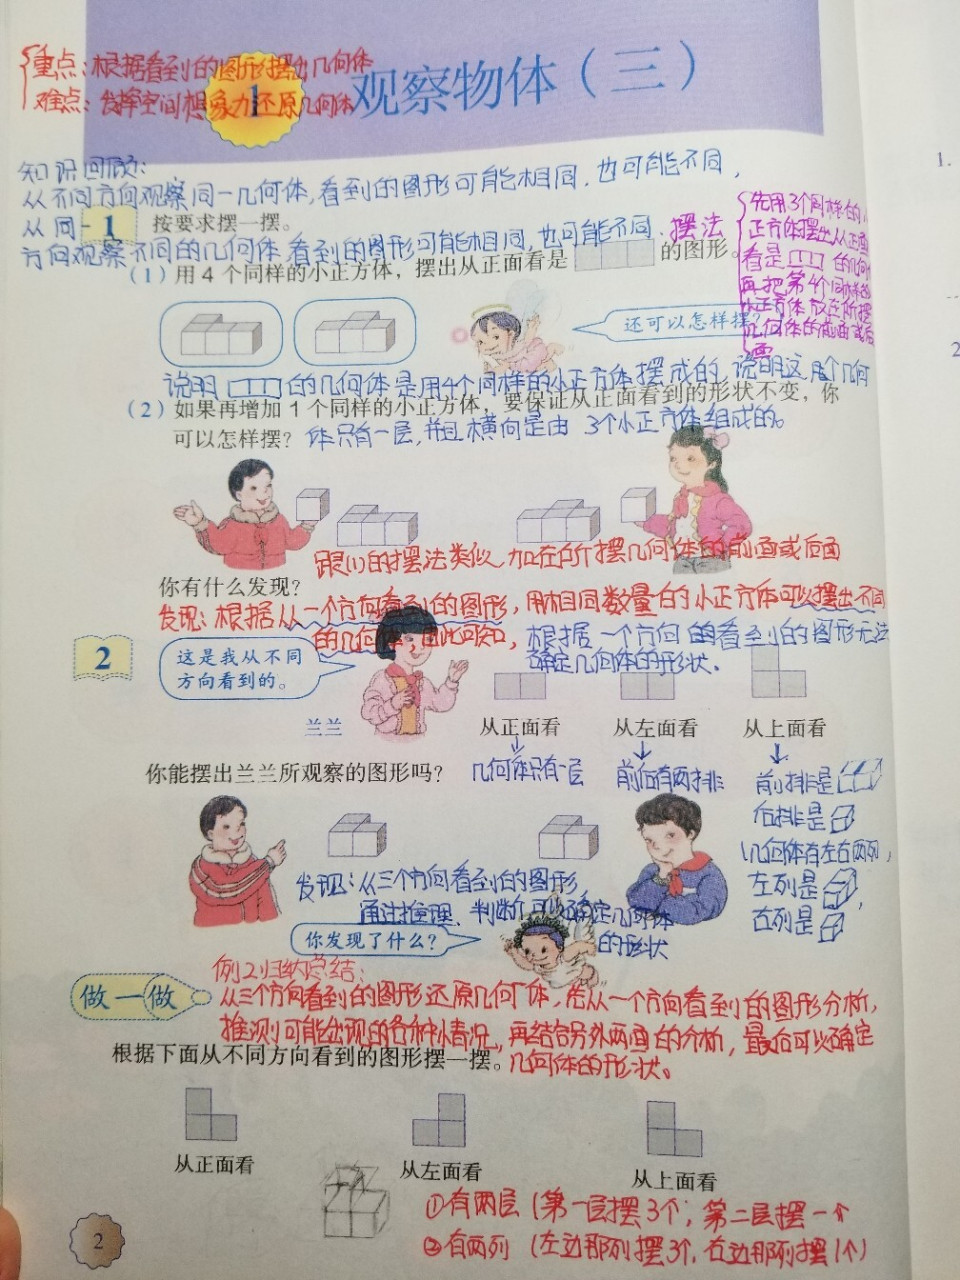 重点：根据看到的图形摆出几何体
难点：发挥空间想象力还原几何体
1 观察物体（三）
知识回顾：
从不同方向观察同一几何体，看到的图形可能相同，也可能不同，
从同一
方向观察不同的几何体，看到的图形可能相同，也可能不同、
摆法
先用3个同样的小
正方体摆出从正面
看是 的几何体
再把第4个同样的
小正方体放在所摆
几何体的前面或后
面
1 按要求摆一摆。
（1）用 4 个同样的小正方体，摆出从正面看是 的图形。
还可以怎样摆？
说明 的几何体是用4个同样的小正方体摆成的，说明这个几何
（2）如果再增加 1 个同样的小正方体，要保证从正面看到的形状不变，你
可以怎样摆？
体只有一层，并且横向是由 3个小正方体组成的。
跟(1)的摆法类似 加在所摆几何体的前面或后面
你有什么发现？
发现：根据从一个方向看到的图形，用相同数量的小正方体可以摆出不同
的几何体，由此可知，
根据一个方向的看到的图形无法
确定几何体的形状.
2
这是我从不同
方向看到的。
兰兰
从正面看 从左面看 从上面看
你能摆出兰兰所观察的图形吗？
几何体只有一层
前后有两排
前排是
后排是
几何体有左右两列，
左列是 ，
右列是
发现：从三个方向看到的图形
通过推理、判断 可以确定几何体
的形状
你发现了什么？
例2归纳总结：
做一做
从三个方向看到的图形还原几何体，先从一个方向看到的图形分析，
推测可能出现的各种情况，再结合另外两面的分析，最后可以确定
几何体的形状。
根据下面从不同方向看到的图形摆一摆。
从正面看 从左面看 从上面看
①有两层（第一层摆3个，第二层摆一个
②有两列（左边那列摆3个，右边那列摆1个）
2
1.
2